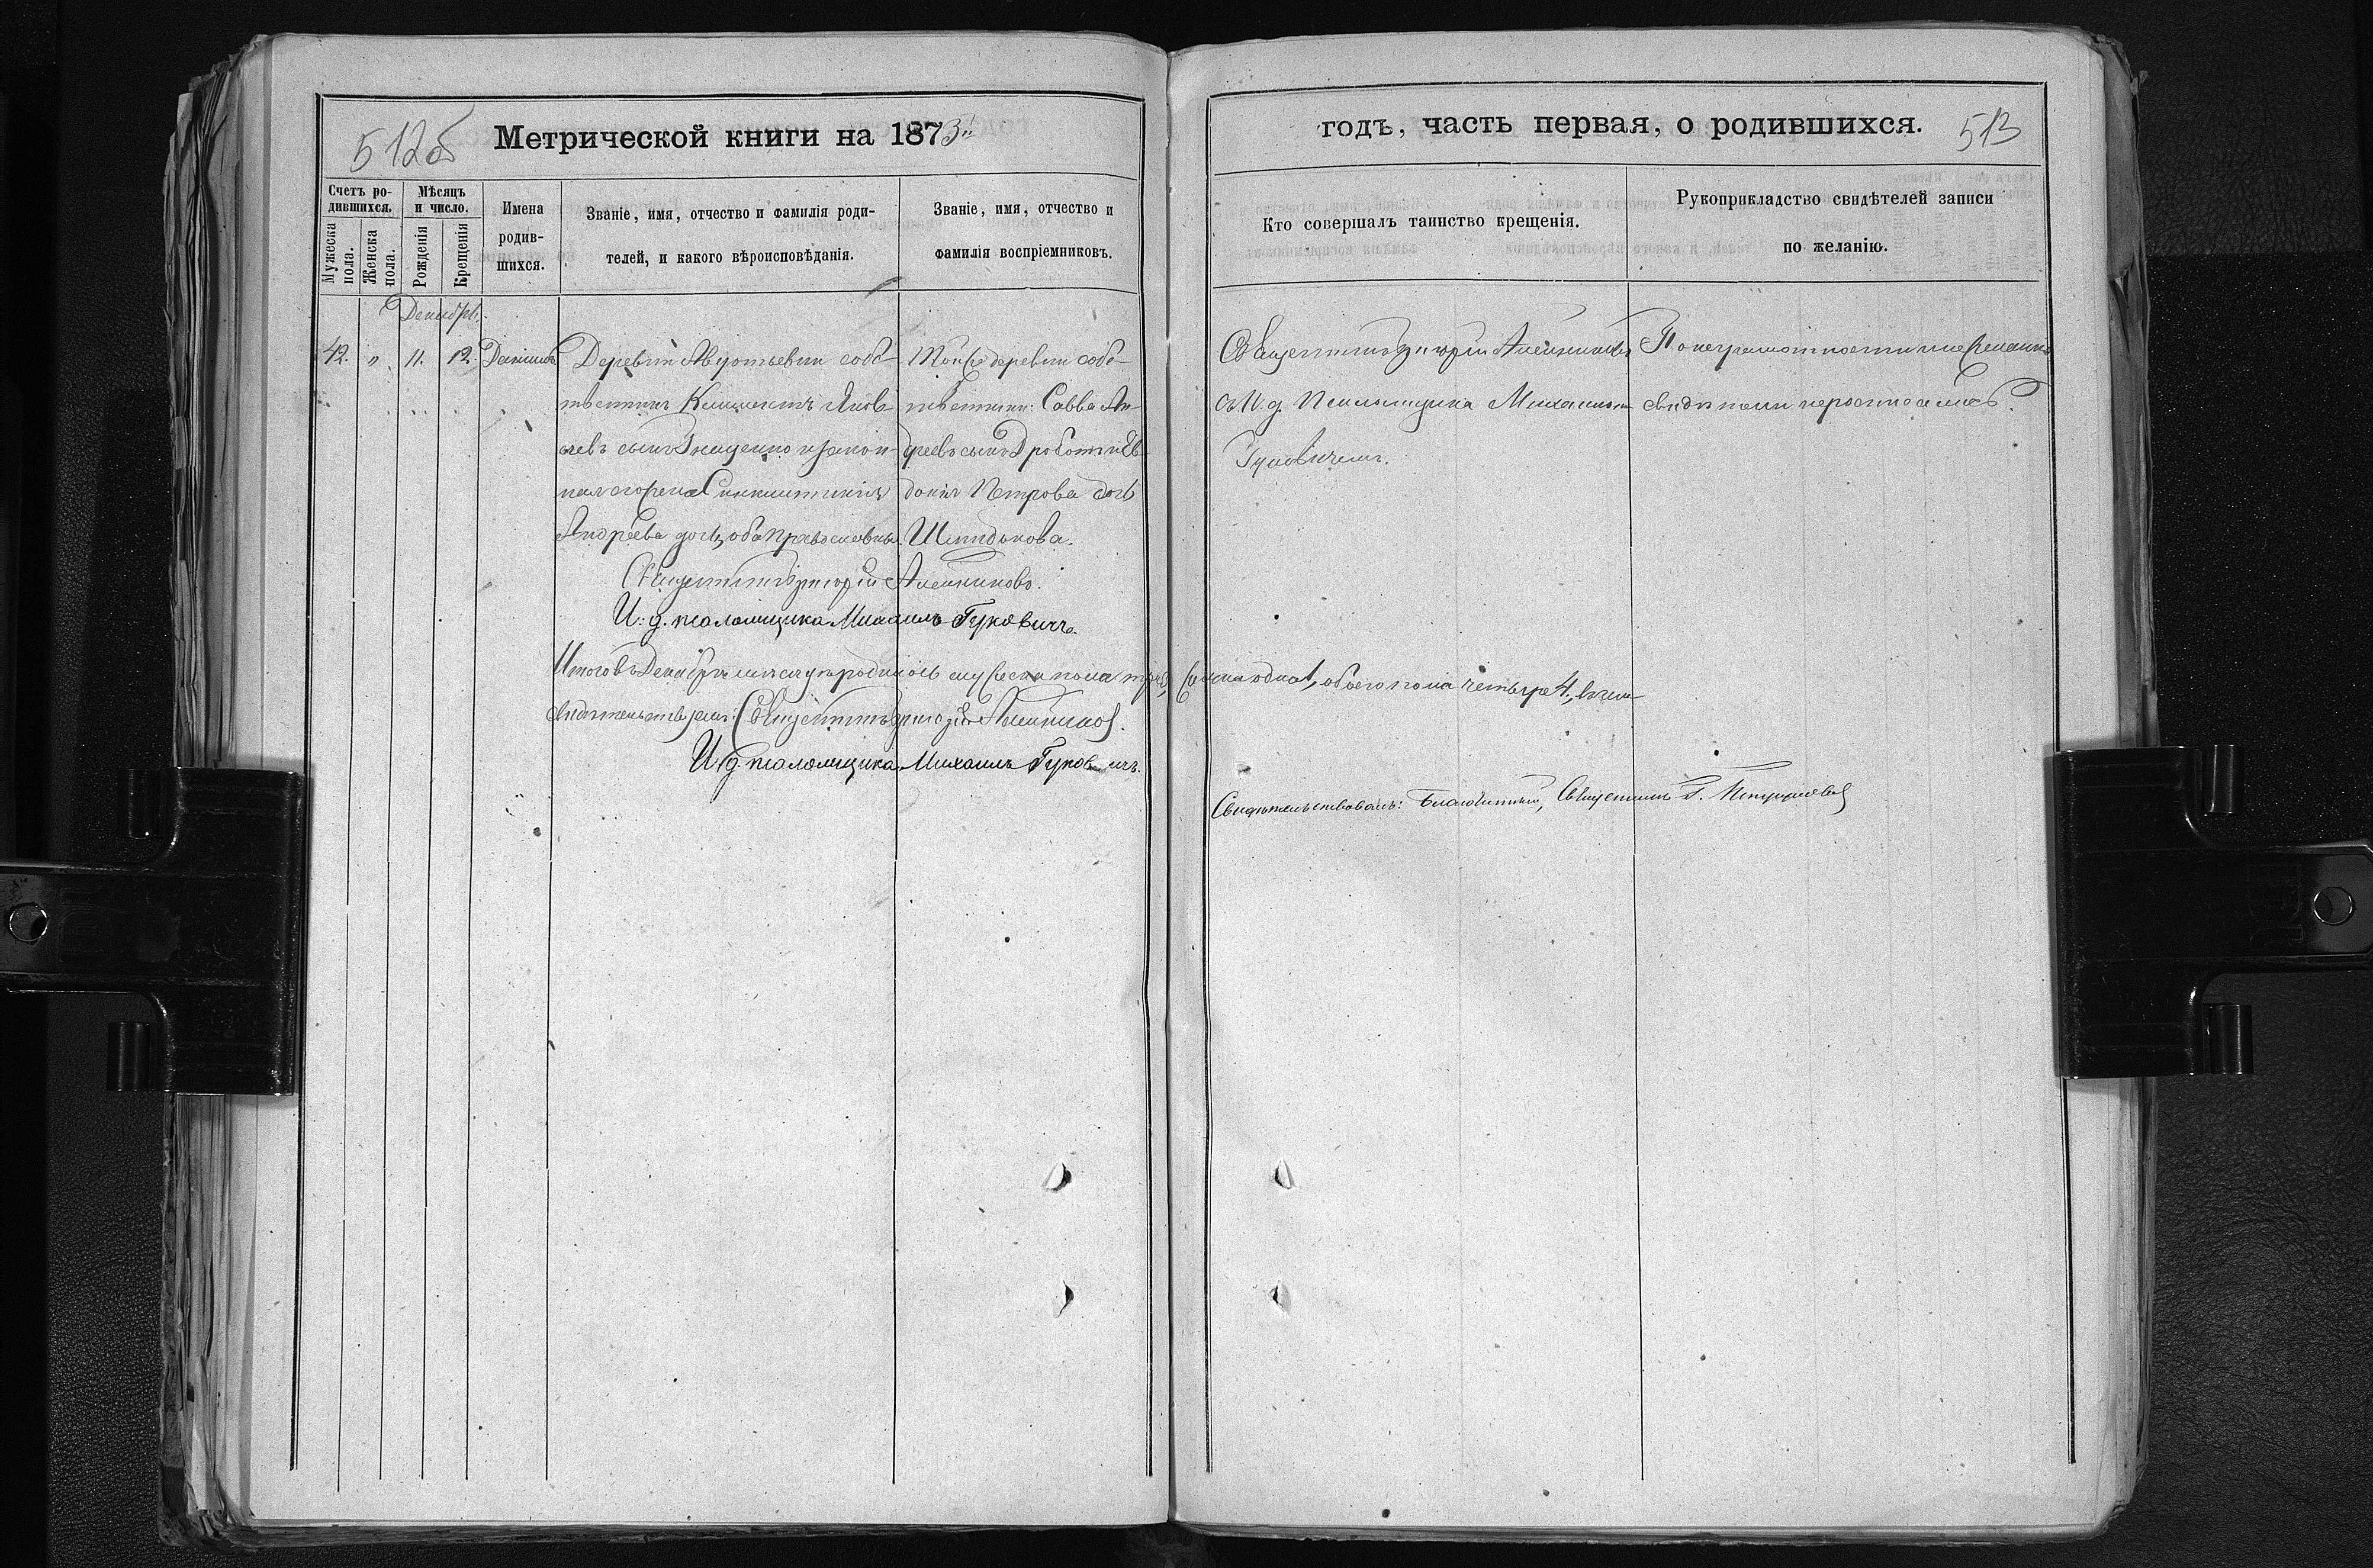 512б
Метрической книги на 1873
годъ, часть первая, о родившихся.
513
Счетъ ро-
дившихся.
Мужеска
пола.
Женска
пола.
Мѣсяцъ
и число.
Рожденія
Крещенія
Имена
родив-
шихся.
Званіе, имя, отчество и фамилія роди-
телей, и какого вѣроисповѣданія.
Званіе, имя, отчество и
фамилія воспріемниковъ.
Кто совершалъ таинство крещенія.
Рукоприкладство свидѣтелей записи
по желанію.
Декабрь.
42. " 11. 12. Даніилъ
Деревни собс-
твенникъ Климентъ Яков-
левъ сынъ и закон-
ная его жена Синклитикія
Андреева дочь, оба православные.
Той же деревни собс-
твенники: Савва Ан-
дреевъ сынъ и Ев-
докія Петрова дочь
Священникъ Григорій Алейниковъ
съ И. д. Псаломщика Михаиломъ
Гуковичемъ.
По неграмотности и нежеланію
свидѣтели не росписались.
Священникъ Григорій Алейниковъ.
И: д. псаломщика Михаилъ Гуковичъ.
Итого въ Декабрѣ мѣсяцѣ родилось мужеска пола три 3, женска одна 1, обоего пола четыре 4, въ чемъ
свидѣтельствуемъ: Священникъ Григорій Алейниковъ.
И. д. псаломщика Михаилъ Гуковичъ.
Свидѣтельствовалъ: Благочинный, Священникъ